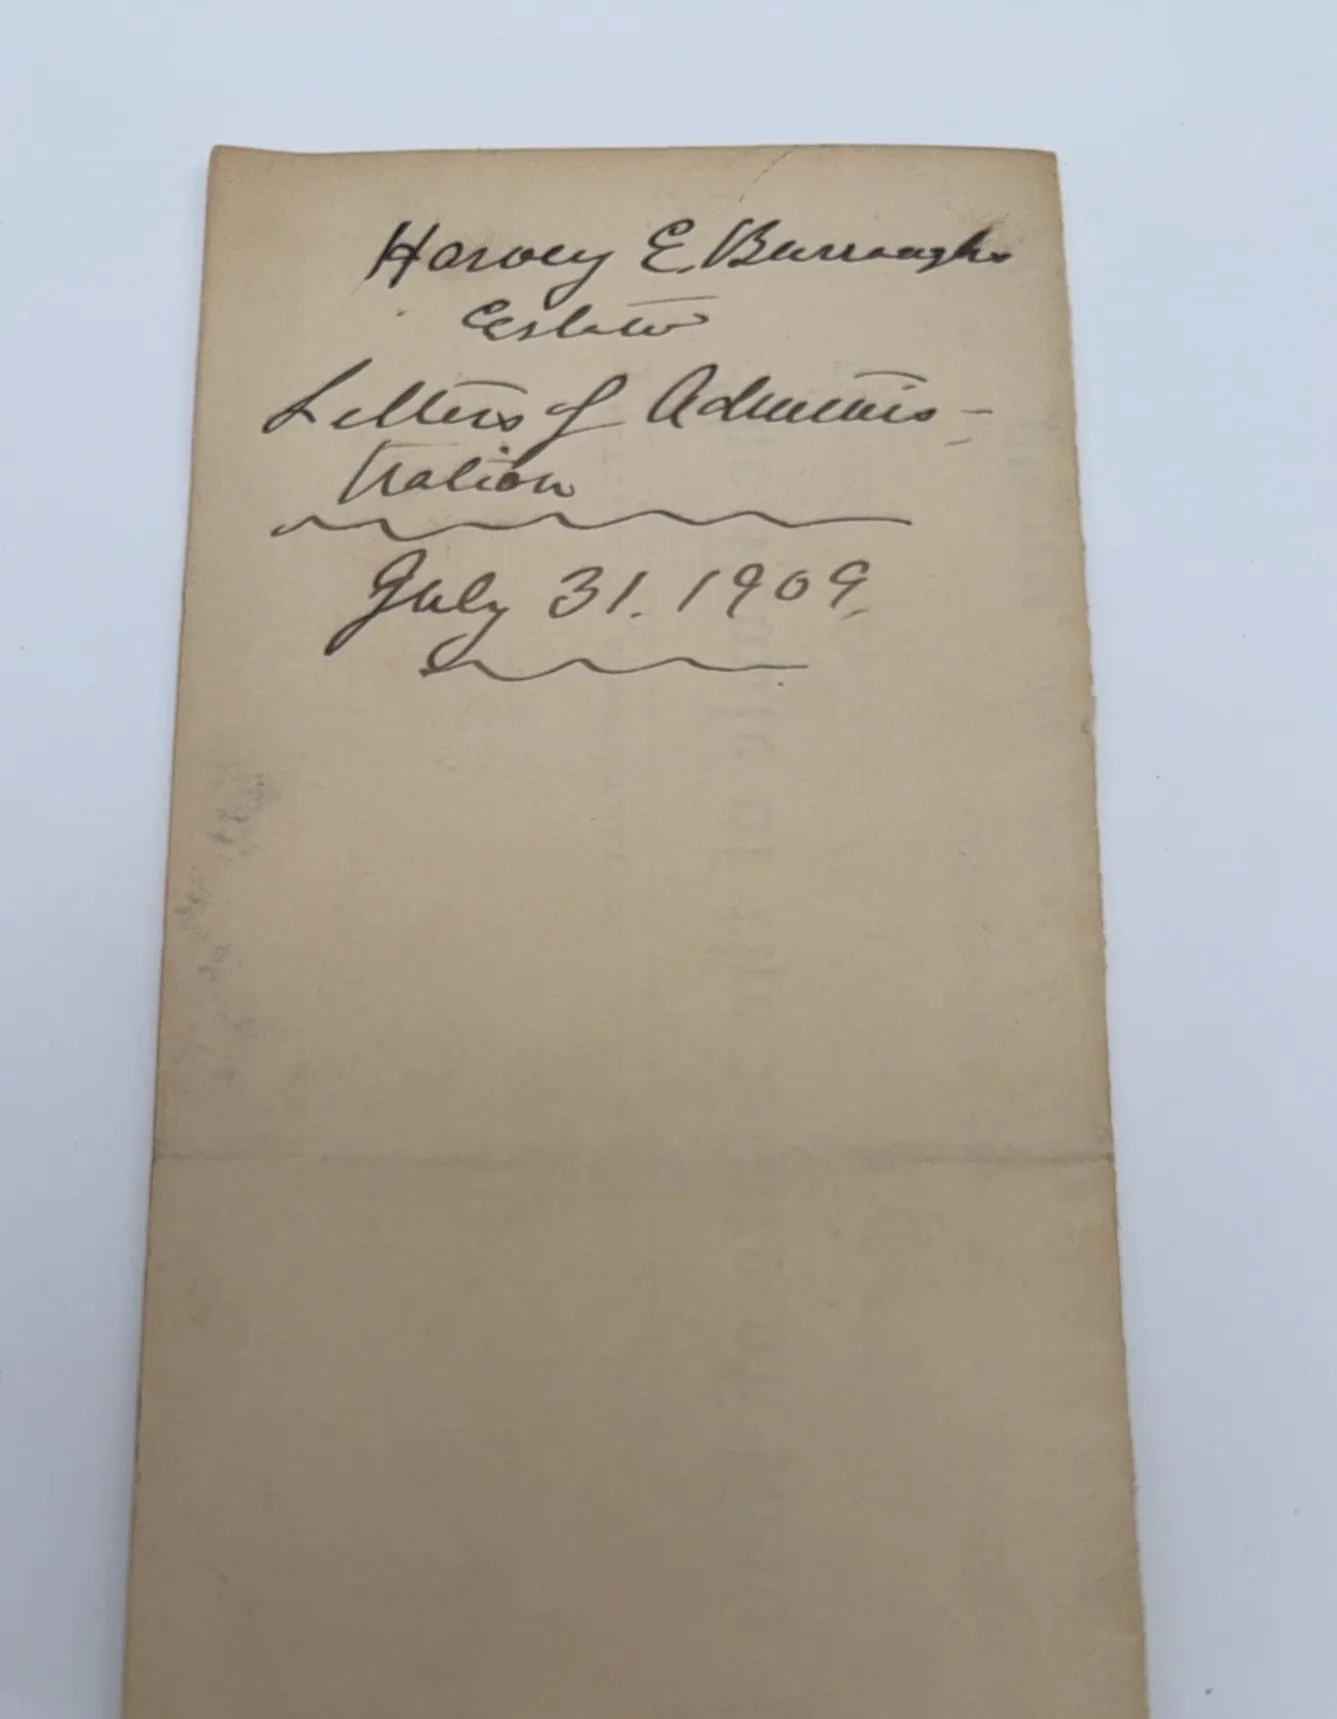 Harvey E. Burroughs
Estate
Letters of Adminis-
tration
July 31. 1909.